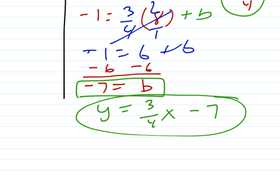 4
-1 = 3/4 (8/1) + b
2
-1 = 6 + b
-6 -6
-7 = b
y = 3/4 x - 7